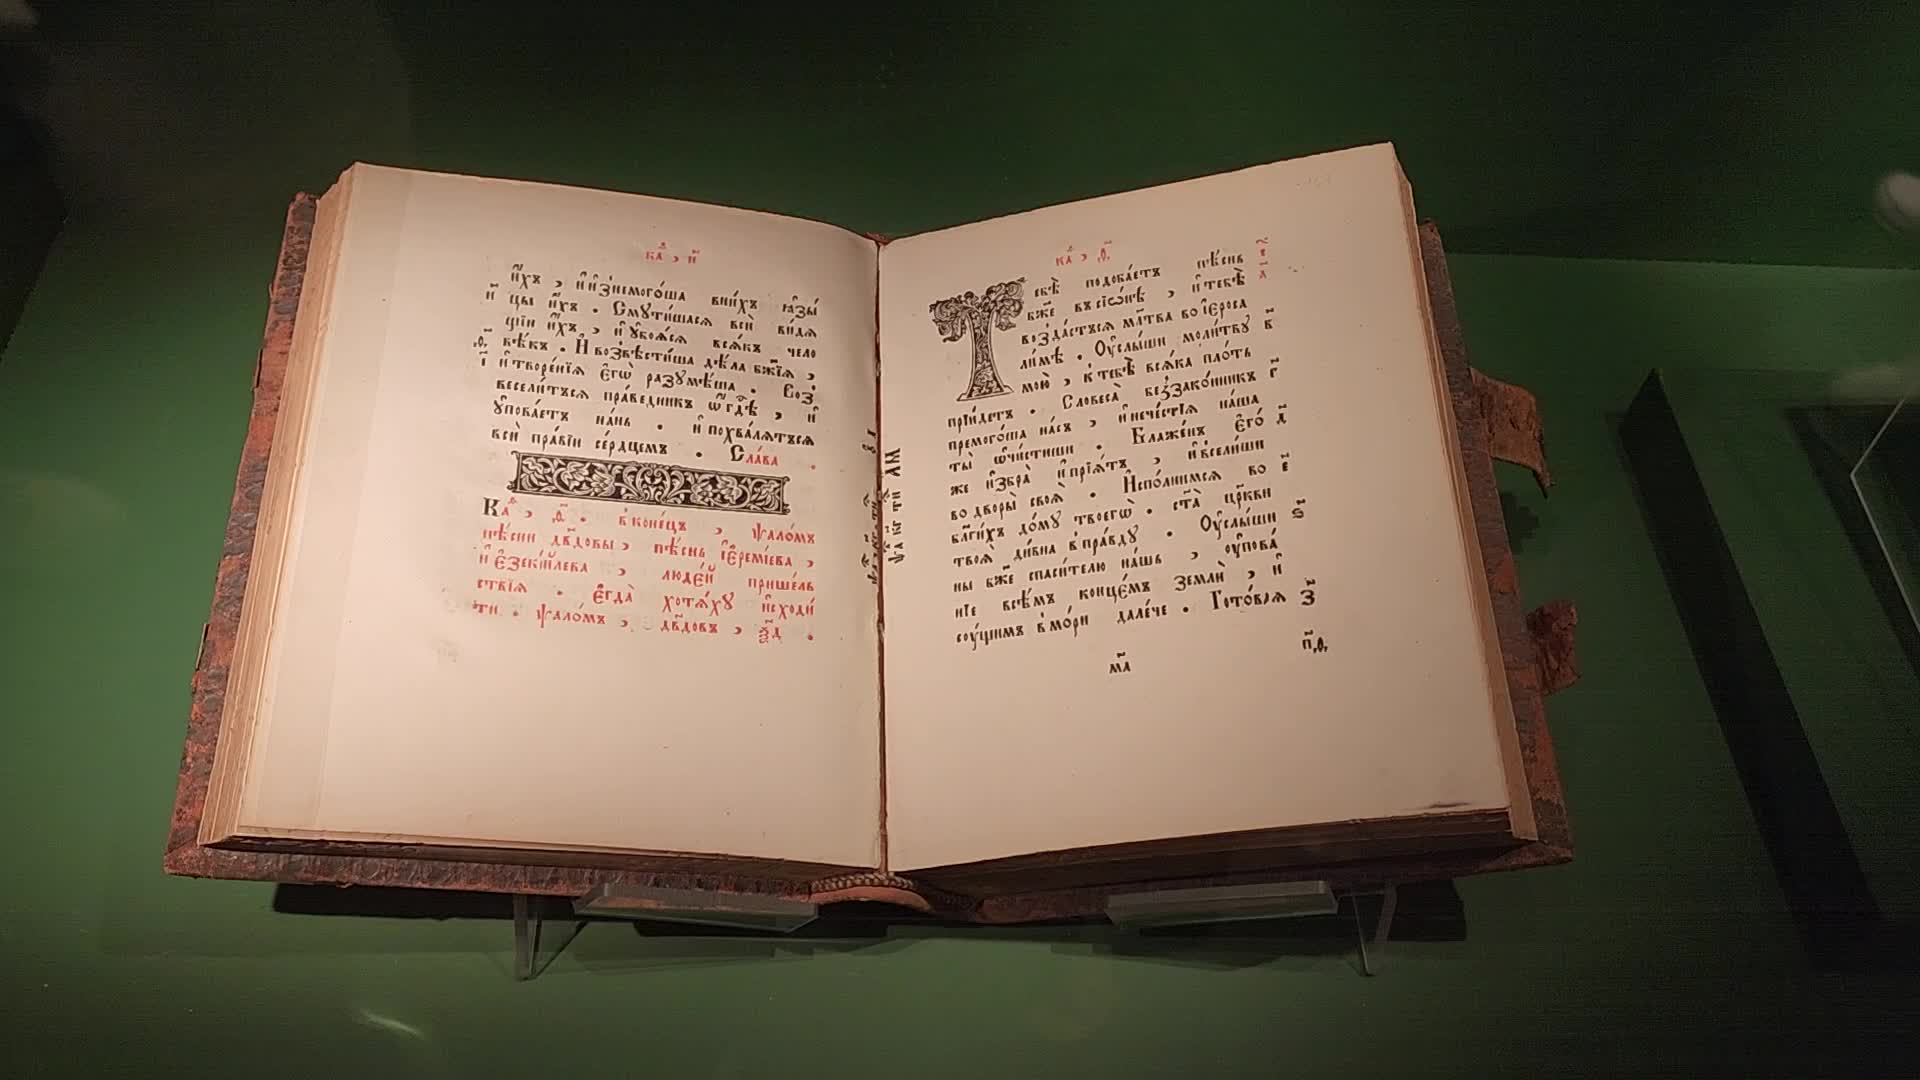 каⷴ҇, и҃
и҆́хъ, и҆ и҆знемого́ша вни́хъ ꙗ҆зы́
и҃ цы и҆́хъ. Смꙋти́шасѧ всѝ ви́дѧ
щіи и҆́хъ, и҆ ᲂу҆боѧ́сѧ всѧ́къ чело
ѳ҃ вѣ́къ. И҆ возвѣсти́ша дѣ́ла бж҃їѧ,
і҃ и҆ творе́нїѧ є҆гѡ̀ разꙋмѣ́ша. Воз
весели́тъсѧ пра́ведникъ ѡ҆ гдⷭ҇ѣ, и҆
ᲂу҆пова́етъ на́нь. и҆ похва́лѧтъсѧ
всѝ пра́вїи се́рдцемъ. Сла́ва.
Каⷴ҇, ѳ҃. в коне́цъ, ѱало́мъ
пѣ́сни дв҃довы, пѣ́снь і҆ереми́ева,
и҆ є҆зекі́илева, люде́й прише́ль
ствїѧ. є҆гда̀ хотѧ́хꙋ и҆сходи́
ти. ѱало́мъ, дв҃довъ, ѯ҃д.
каⷴ҇, ѳ҃.
Тебѣ̀ подоба́етъ пѣ́снь в҃
бж҃е въ сїѡ́нѣ, и҆ тебѣ̀ л҃
возда́стъсѧ мл҃тва во і҆ероса
ли́мѣ. Оу҆слы́ши моли́твꙋ г҃
мою̀, к тебѣ̀ всѧ́ка пло́ть
прїи́детъ. Словеса̀ беззако́нникъ г҃
премого́ша на́съ, и҆ нече́стїѧ на́ша
ты̀ ѡ҆чи́стиши. Блаже́нъ є҆го́ д҃
же и҆збра̀ и҆ прїѧ́тъ, и҆ всели́ши
во дворы̀ своѧ̀. И҆спо́лнимсѧ во є҃
бл҃ги́хъ до́мꙋ твоегѡ̀. ст҃а цр҃кви
твоѧ̀ ди́вна в пра́вдꙋ. Оу҆слы́ши ѕ҃
ны бж҃е спаси́телю на́шъ, ᲂу҆пова́
нїе всѣ́мъ конце́мъ землѝ, и҆
сꙋ́щимъ в мо́ри дале́че. Гото́вѧѧ з҃
м҃а
п҃ѳ